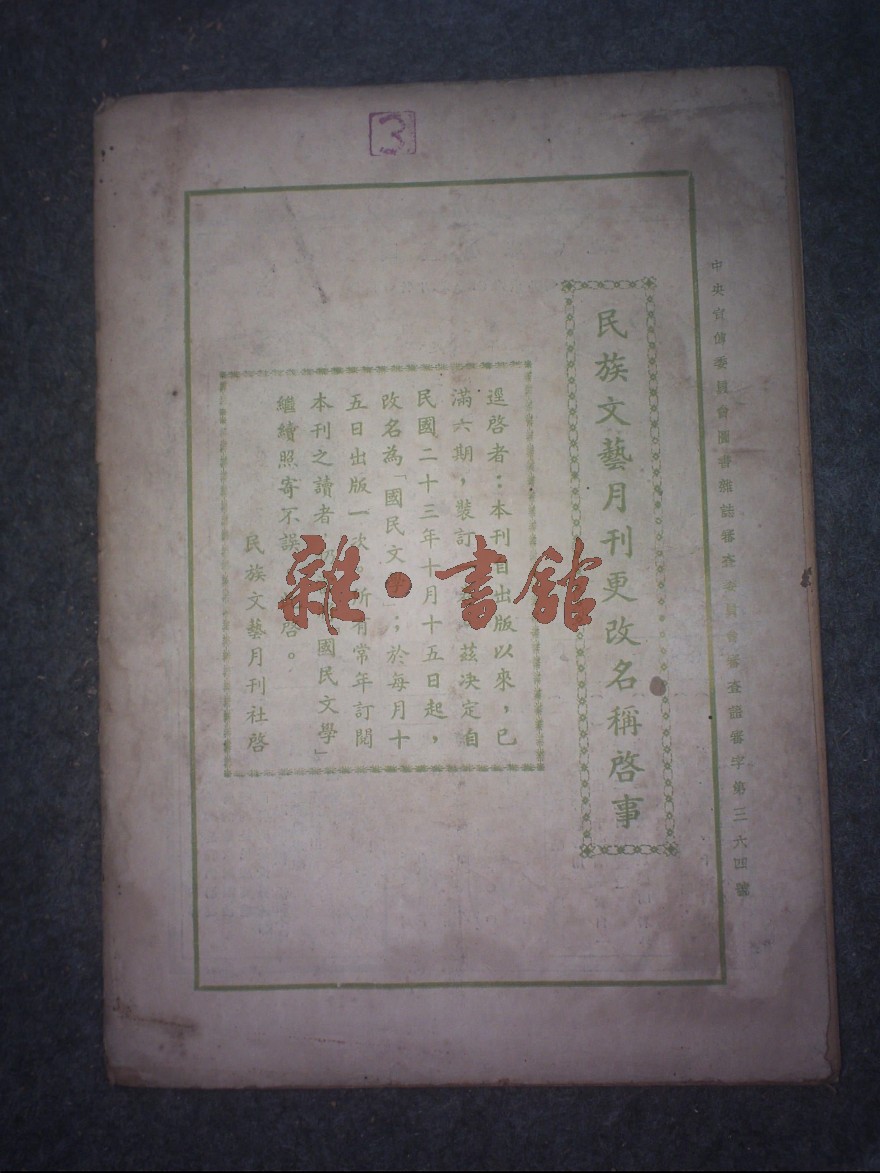 3
中央宣傳委員會圖書雜誌審查委員會審查證審字第三六四號
民族文藝月刊更改名稱啓事
逕啓者：本刊自出版以來，已
滿六期，裝訂 茲決定自
民國二十三年十月十五日起，
改名為「國民文學」；於每月十
五日出版一次 所有常年訂閱
本刊之讀者 國民文學」
繼續照寄不誤 啓。
民族文藝月刊社啓
雜·書館